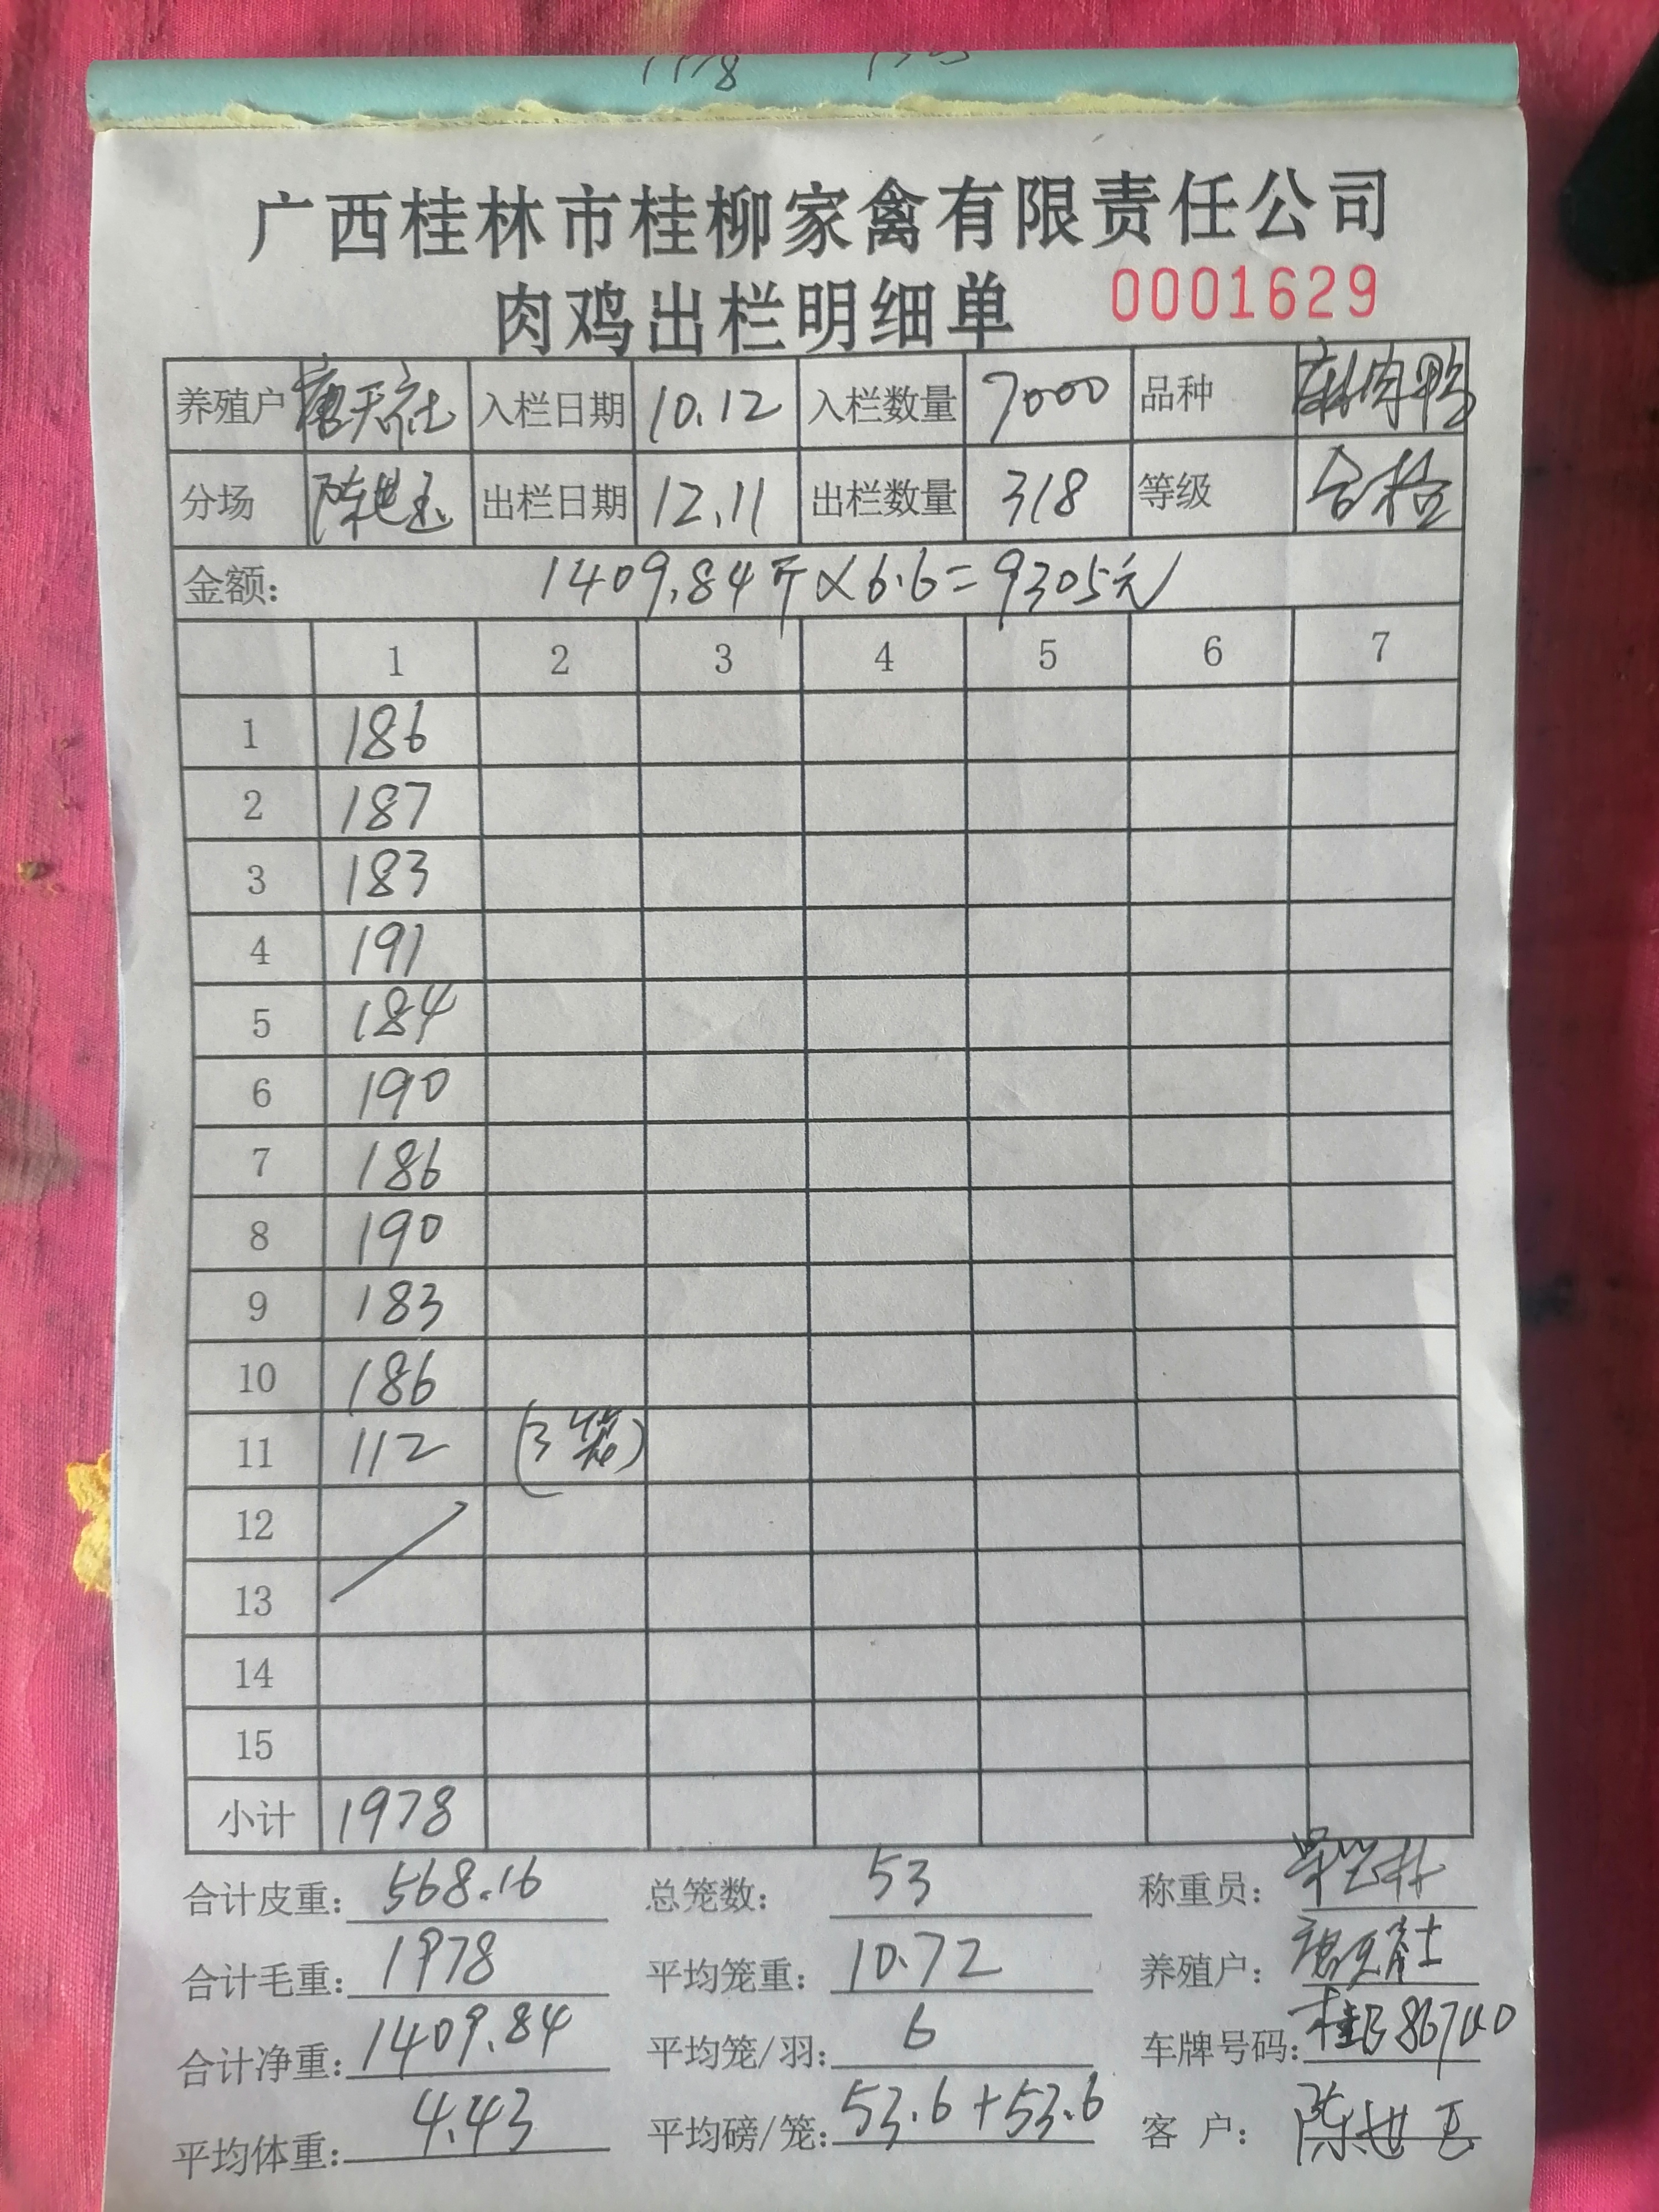 1978
广西桂林市桂柳家禽有限责任公司
肉鸡出栏明细单 0001629
养殖户 唐天 入栏日期 10.12 入栏数量 7000 品种
分场 陈世玉 出栏日期 12.11 出栏数量 318 等级 合格
金额: 1409.84斤×6.6=9305元
1 2 3 4 5 6 7
1 186
2 187
3 183
4 191
5 184
6 190
7 186
8 190
9 183
10 186
11 112 (3笼)
12
13
14
15
小计 1978
合计皮重: 568.16 总笼数: 53 称重员:
合计毛重: 1978 平均笼重: 10.72 养殖户:
合计净重: 1409.84 平均笼/羽: 6 车牌号码: 桂B86740
平均体重: 4.43 平均磅/笼: 53.6+53.6 客户: 陈世玉